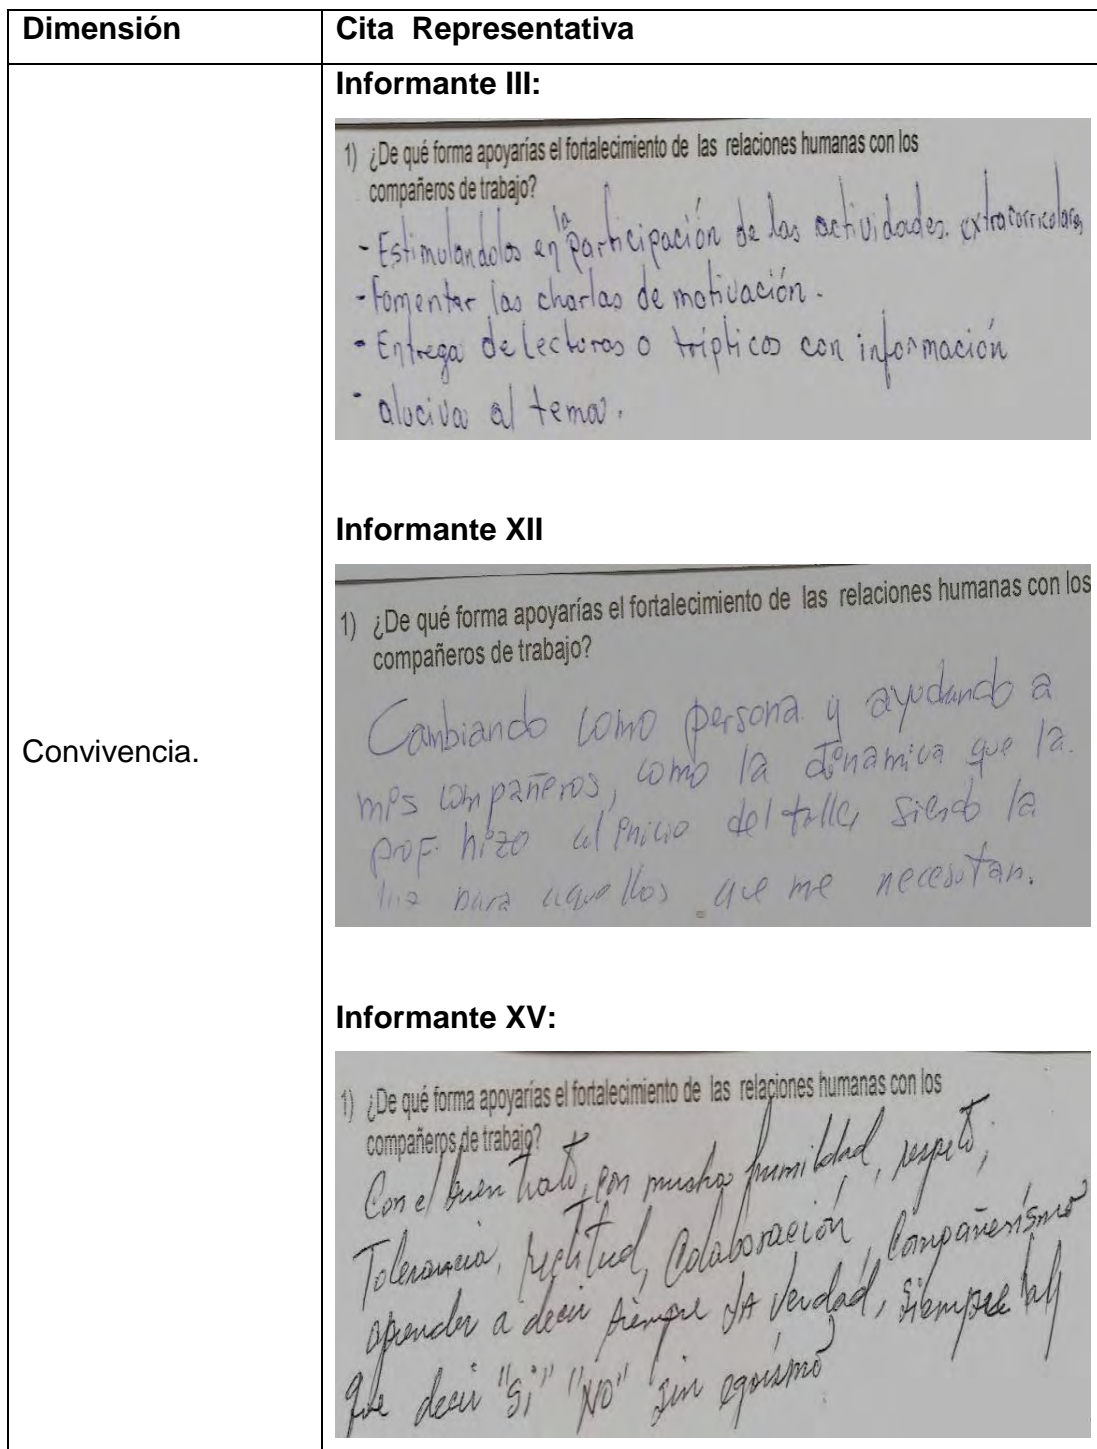 Dimensión
Cita Representativa
Informante III:
1) ¿De qué forma apoyarías el fortalecimiento de las relaciones humanas con los
compañeros de trabajo?
- Estimulandolos en la participación de las actividades. extracorricolares
- fomentar las charlas de motivación.
- Entrega de lecturas o trípticos con información
- alociva al tema.
Informante XII
1) ¿De qué forma apoyarías el fortalecimiento de las relaciones humanas con los
compañeros de trabajo?
Cambiando como persona y ayudando a
mis compañeros, como la dinamica que la
prof. hizo al inicio del taller siendo la
luz para aquellos que me necesitan.
Convivencia.
Informante XV:
1) ¿De qué forma apoyarías el fortalecimiento de las relaciones humanas con los
compañeros de trabajo?
Con el buen trato, con mucha humildad, respeto,
Tolerancia, rectitud, Colaboración, Compañerísmo
aprender a decir siempre LA Verdad, siempre hay
que decir "Si" "NO" sin egoismo